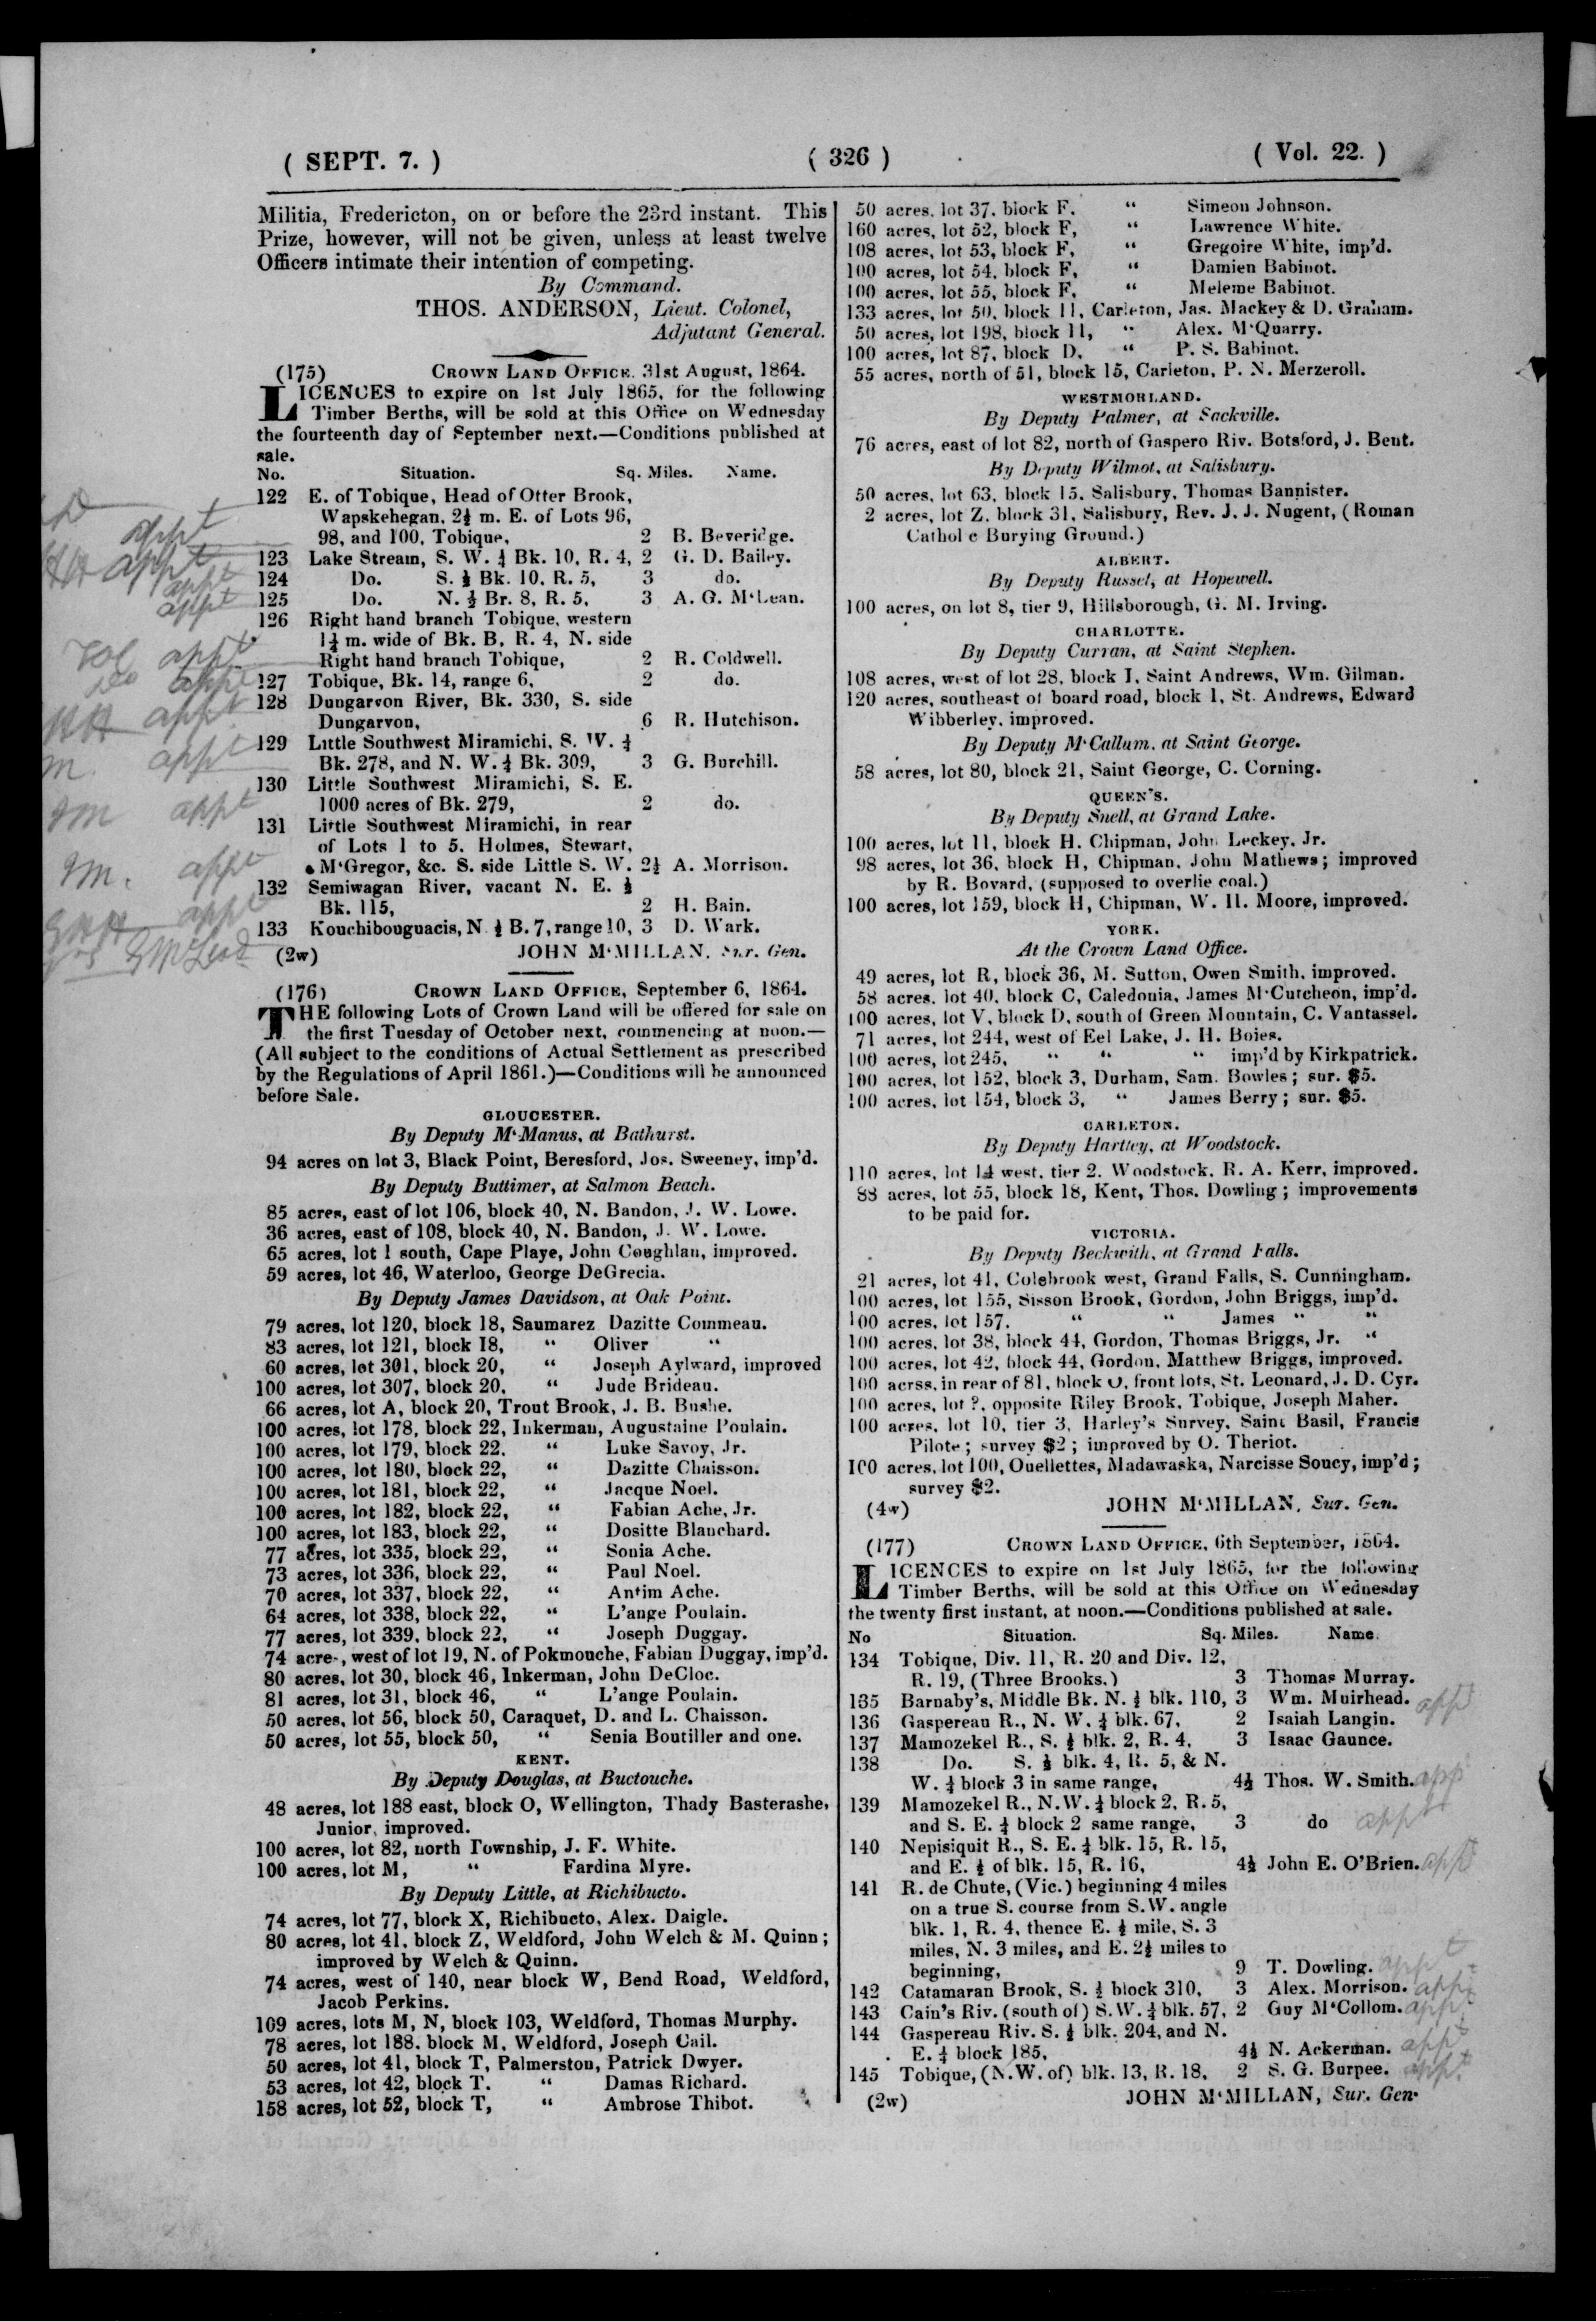 ( SEPT. 7. )
( 326 )
( Vol. 22. )
Militia, Fredericton, on or before the 23rd instant. This
Prize, however, will not be given, unless at least twelve
Officers intimate their intention of competing.
By Command.
THOS. ANDERSON, Lieut. Colonel,
Adjutant General.
(175) CROWN LAND OFFICE, 31st August, 1864.
LICENCES to expire on 1st July 1865, for the following
Timber Berths, will be sold at this Office on Wednesday
the fourteenth day of September next.—Conditions published at
sale.
No. Situation. Sq. Miles. Name.
122 E. of Tobique, Head of Otter Brook,
Wapskehegan, 2½ m. E. of Lots 96,
98, and 100, Tobique, 2 B. Beveridge.
appt
123 Lake Stream, S. W. ¼ Bk. 10, R. 4, 2 G. D. Bailey.
appt
124 Do. S. ½ Bk. 10, R. 5, 3 do.
appt
125 Do. N. ½ Br. 8, R. 5, 3 A. G. M'Lean.
appt
126 Right hand branch Tobique, western
1¼ m. wide of Bk. B, R. 4, N. side
Right hand branch Tobique, 2 R. Coldwell.
appt
127 Tobique, Bk. 14, range 6, 2 do.
appt
128 Dungarvon River, Bk. 330, S. side
Dungarvon, 6 R. Hutchison.
appt
129 Little Southwest Miramichi, S. W. ¼
Bk. 278, and N. W. ¼ Bk. 309, 3 G. Burchill.
appt
130 Little Southwest Miramichi, S. E.
1000 acres of Bk. 279, 2 do.
appt
131 Little Southwest Miramichi, in rear
of Lots 1 to 5, Holmes, Stewart,
M'Gregor, &c. S. side Little S. W. 2½ A. Morrison.
appt
132 Semiwagan River, vacant N. E. ½
Bk. 115, 2 H. Bain.
appt
133 Kouchibouguacis, N ½ B. 7, range 10, 3 D. Wark.
(2w) JOHN M'MILLAN, Sur. Gen.
(176) CROWN LAND OFFICE, September 6, 1864.
THE following Lots of Crown Land will be offered for sale on
the first Tuesday of October next, commencing at noon.—
(All subject to the conditions of Actual Settlement as prescribed
by the Regulations of April 1861.)—Conditions will be announced
before Sale.
GLOUCESTER.
By Deputy M'Manus, at Bathurst.
94 acres on lot 3, Black Point, Beresford, Jos. Sweeney, imp'd.
By Deputy Buttimer, at Salmon Beach.
85 acres, east of lot 106, block 40, N. Bandon, J. W. Lowe.
36 acres, east of 108, block 40, N. Bandon, J. W. Lowe.
65 acres, lot 1 south, Cape Playe, John Coughlan, improved.
59 acres, lot 46, Waterloo, George DeGrecia.
By Deputy James Davidson, at Oak Point.
79 acres, lot 120, block 18, Saumarez Dazitte Commeau.
83 acres, lot 121, block 18, “ Oliver “
60 acres, lot 301, block 20, “ Joseph Aylward, improved
100 acres, lot 307, block 20, “ Jude Brideau.
66 acres, lot A, block 20, Trout Brook, J. B. Bushe.
100 acres, lot 178, block 22, Inkerman, Augustaine Poulain.
100 acres, lot 179, block 22. “ Luke Savoy, Jr.
100 acres, lot 180, block 22, “ Dazitte Chaisson.
100 acres, lot 181, block 22, “ Jacque Noel.
100 acres, lot 182, block 22, “ Fabian Ache, Jr.
100 acres, lot 183, block 22, “ Dositte Blanchard.
77 acres, lot 335, block 22, “ Sonia Ache.
73 acres, lot 336, block 22, “ Paul Noel.
70 acres, lot 337, block 22, “ Antim Ache.
64 acres, lot 338, block 22, “ L'ange Poulain.
77 acres, lot 339, block 22, “ Joseph Duggay.
74 acre-, west of lot 19, N. of Pokmouche, Fabian Duggay, imp'd.
80 acres, lot 30, block 46, Inkerman, John DeCloc.
81 acres, lot 31, block 46, “ L'ange Poulain.
50 acres, lot 56, block 50, Caraquet, D. and L. Chaisson.
50 acres, lot 55, block 50, “ Senia Boutiller and one.
KENT.
By Deputy Douglas, at Buctouche.
48 acres, lot 188 east, block O, Wellington, Thady Basterashe,
Junior, improved.
100 acres, lot 82, north Township, J. F. White.
100 acres, lot M, “ Fardina Myre.
By Deputy Little, at Richibucto.
74 acres, lot 77, block X, Richibucto, Alex. Daigle.
80 acres, lot 41, block Z, Weldford, John Welch & M. Quinn;
improved by Welch & Quinn.
74 acres, west of 140, near block W, Bend Road, Weldford,
Jacob Perkins.
109 acres, lots M, N, block 103, Weldford, Thomas Murphy.
78 acres, lot 188, block M, Weldford, Joseph Cail.
50 acres, lot 41, block T, Palmerston, Patrick Dwyer.
53 acres, lot 42, block T. “ Damas Richard.
158 acres, lot 52, block T, “ Ambrose Thibot.
50 acres, lot 37, block F, “ Simeon Johnson.
160 acres, lot 52, block F, “ Lawrence White.
108 acres, lot 53, block F, “ Gregoire White, imp'd.
100 acres, lot 54, block F, “ Damien Babinot.
100 acres, lot 55, block F, “ Meleme Babinot.
133 acres, lot 50, block 11, Carleton, Jas. Mackey & D. Graham.
50 acres, lot 198, block 11, “ Alex. M'Quarry.
100 acres, lot 87, block D, “ P. S. Babinot.
55 acres, north of 51, block 15, Carleton, P. N. Merzeroll.
WESTMORLAND.
By Deputy Palmer, at Sackville.
76 acres, east of lot 82, north of Gaspero Riv. Botsford, J. Bent.
By Deputy Wilmot, at Salisbury.
50 acres, lot 63, block 15, Salisbury, Thomas Bannister.
2 acres, lot Z, block 31, Salisbury, Rev. J. J. Nugent, (Roman
Cathol c Burying Ground.)
ALBERT.
By Deputy Russel, at Hopewell.
100 acres, on lot 8, tier 9, Hillsborough, G. M. Irving.
CHARLOTTE.
By Deputy Curran, at Saint Stephen.
108 acres, west of lot 28, block I, Saint Andrews, Wm. Gilman.
120 acres, southeast of board road, block 1, St. Andrews, Edward
Wibberley, improved.
By Deputy M'Callum, at Saint George.
58 acres, lot 80, block 21, Saint George, C. Corning.
QUEEN'S.
By Deputy Snell, at Grand Lake.
100 acres, lot 11, block H, Chipman, John Leckey, Jr.
98 acres, lot 36, block H, Chipman, John Mathews; improved
by R. Bovard, (supposed to overlie coal.)
100 acres, lot 159, block H, Chipman, W. H. Moore, improved.
YORK.
At the Crown Land Office.
49 acres, lot R, block 36, M. Sutton, Owen Smith, improved.
58 acres, lot 40, block C, Caledonia, James M'Cutcheon, imp'd.
100 acres, lot V, block D, south of Green Mountain, C. Vantassel.
71 acres, lot 244, west of Eel Lake, J. H. Boies.
100 acres, lot 245, “ “ “ imp'd by Kirkpatrick.
100 acres, lot 152, block 3, Durham, Sam. Bowles; sur. $5.
100 acres, lot 154, block 3, “ James Berry; sur. $5.
CARLETON.
By Deputy Hartley, at Woodstock.
110 acres, lot 14 west, tier 2, Woodstock, R. A. Kerr, improved.
88 acres, lot 55, block 18, Kent, Thos. Dowling; improvements
to be paid for.
VICTORIA.
By Deputy Beckwith, at Grand Falls.
21 acres, lot 41, Colebrook west, Grand Falls, S. Cunningham.
100 acres, lot 155, Sisson Brook, Gordon, John Briggs, imp'd.
100 acres, lot 157. “ “ James “ “
100 acres, lot 38, block 44, Gordon, Thomas Briggs, Jr. “
100 acres, lot 42, block 44, Gordon, Matthew Briggs, improved.
100 acrss, in rear of 81, block O, front lots, St. Leonard, J. D. Cyr.
100 acres, lot ?, opposite Riley Brook, Tobique, Joseph Maher.
100 acres, lot 10, tier 3, Harley's Survey, Saint Basil, Francis
Pilote; survey $2; improved by O. Theriot.
100 acres, lot 100, Ouellettes, Madawaska, Narcisse Soucy, imp'd;
survey $2.
(4w) JOHN M'MILLAN, Sur. Gen.
(177) CROWN LAND OFFICE, 6th September, 1864.
LICENCES to expire on 1st July 1865, for the following
Timber Berths, will be sold at this Office on Wednesday
the twenty first instant, at noon.—Conditions published at sale.
No Situation. Sq. Miles. Name.
134 Tobique, Div. 11, R. 20 and Div. 12,
R. 19, (Three Brooks.) 3 Thomas Murray.
135 Barnaby's, Middle Bk. N. ½ blk. 110, 3 Wm. Muirhead. appt
136 Gaspereau R., N. W. ¼ blk. 67, 2 Isaiah Langin.
137 Mamozekel R., S. ½ blk. 2, R. 4, 3 Isaac Gaunce.
138 Do. S. ½ blk. 4, R. 5, & N.
W. ¼ block 3 in same range, 4½ Thos. W. Smith. appt
139 Mamozekel R., N. W. ¼ block 2, R. 5,
and S. E. ¼ block 2 same range, 3 do appt
140 Nepisiquit R., S. E. ¼ blk. 15, R. 15,
and E. ½ of blk. 15, R. 16, 4½ John E. O'Brien. appt
141 R. de Chute, (Vic.) beginning 4 miles
on a true S. course from S.W. angle
blk. 1, R. 4, thence E. ½ mile, S. 3
miles, N. 3 miles, and E. 2½ miles to
beginning, 9 T. Dowling. appt
142 Catamaran Brook, S. ½ block 310, 3 Alex. Morrison. appt
143 Cain's Riv. (south of) S. W. ¼ blk. 57, 2 Guy M'Collom. appt
144 Gaspereau Riv. S. ½ blk. 204, and N.
E. ¼ block 185, 4½ N. Ackerman. appt
145 Tobique, (N.W. of) blk. 13, R. 18, 2 S. G. Burpee. appt
(2w) JOHN M'MILLAN, Sur. Gen.